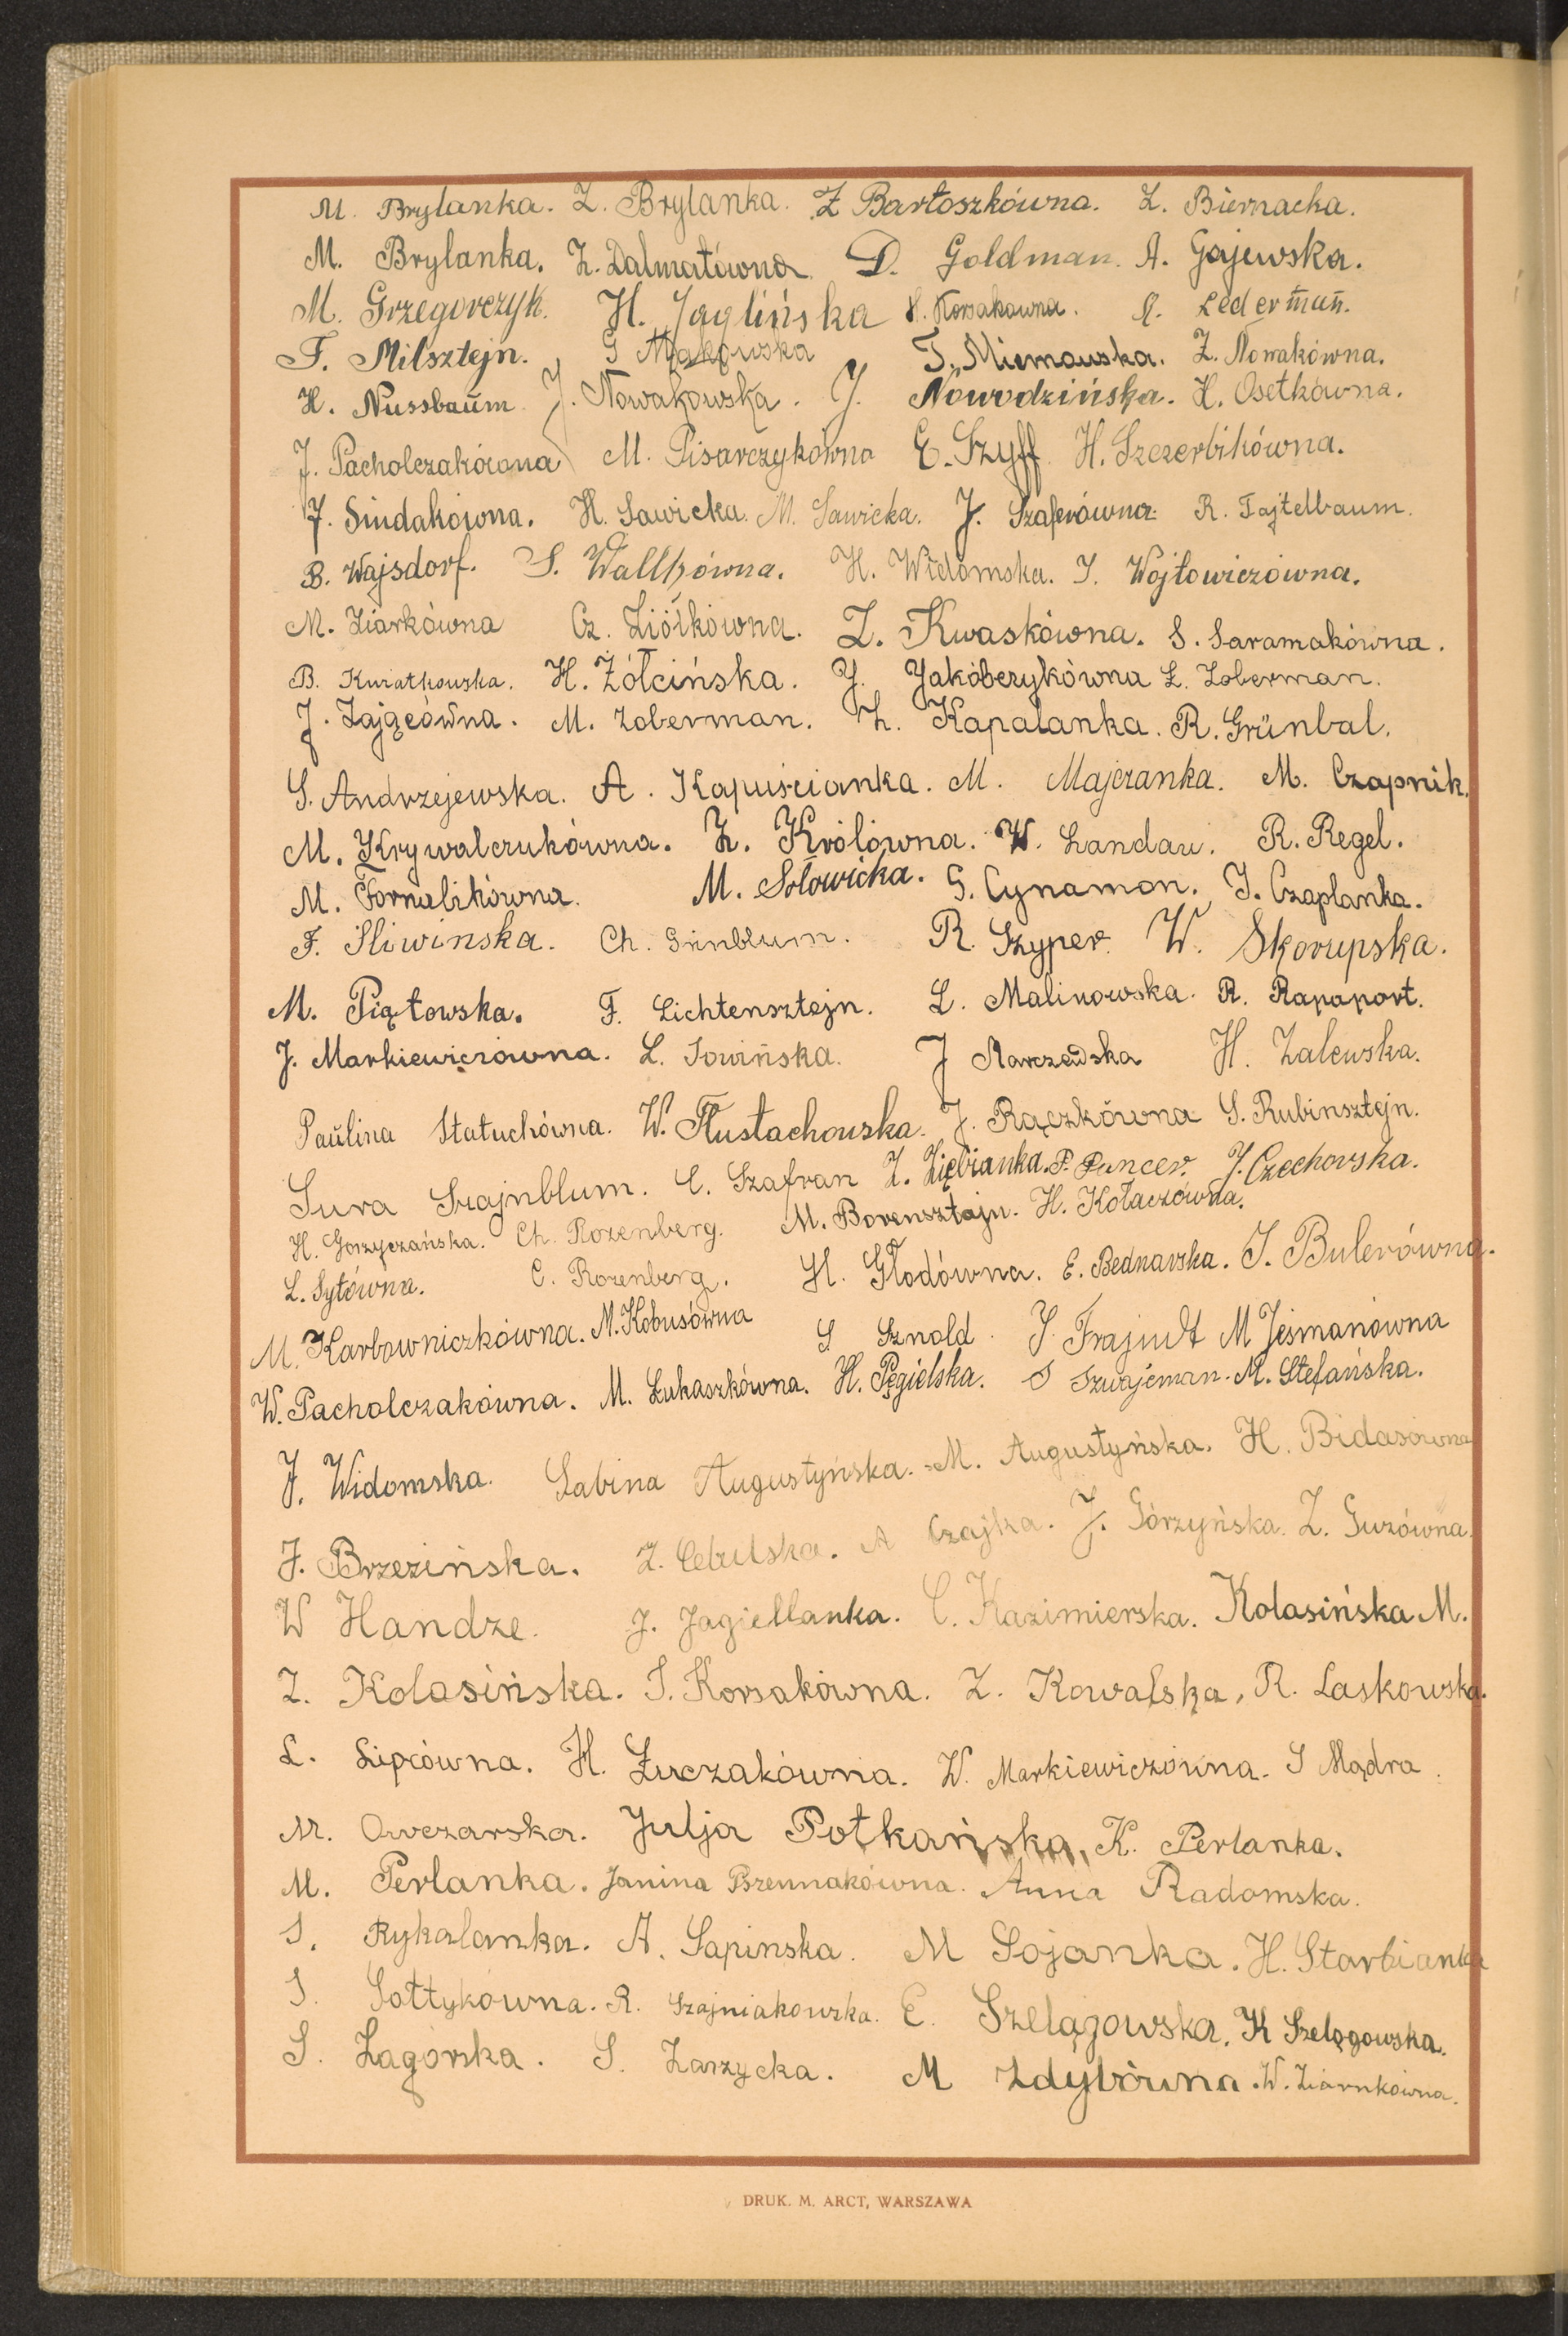 M. Brylanka. Z. Brylanka. Z Bartoszkówna. Z. Biernacka.
M. Brylanka. Z. Dalmatówna D. Goldman. A. Gajewska.
M. Grzegorczyk. H. Jaglińska H. Korsakowna. A. Lederman.
F. Milsztejn. G Makowska T. Miernowska. Z. Nowakówna.
H. Nussbaum J. Nowakowska. J. Nowodzińska. H. Osetkówna.
J. Pacholczakówna M. Pisarczykówna E. Szyff H. Szczerbikówna.
J. Sindakówna. H. Sawicka. M. Sawicka. J. Szaferówna. R. Tajtelbaum.
B. Wajsdorf. S. Walkówna. H. Widomska. I. Wojtowiczówna.
M. Ziarkówna Cz. Ziółkówna. Z. Kwaskówna. S. Saramakówna.
B. Kwiatkowska. H. Żółcińska. J. Jakóbczykówna L. Zoberman.
J. Zającówna. M. Zoberman. Z. Kapalanka. R. Grünbal.
S. Andrzejewska. A. Kapuścianka. M. Majczanka. M. Czapnik.
M. Krywalczukówna. Z. Królówna. W. Landau. R. Regel.
M. Fornalikówna. M. Sołowicka. G. Cynamon. I. Czaplanka.
F. Śliwinska. Ch. Grinblum. R. Szyper. W. Skorupska.
M. Piątowska. F. Lichtensztejn. L. Malinowska. R. Rapaport.
J. Markiewiczówna. L. Sowińska. J Marczewska H. Zalewska.
Paulina Statuchówna. W. Tłustachowska. J. Rączkówna S. Rubinsztejn.
Sura Szajnblum. C. Szafran Z. Ziębianka. P. Pancer. J. Czechowska.
H. Gorzyczańska. Ch. Rozenberg. M. Borensztajn. H. Kołaczówna.
L. Sytówna. C. Rozenberg. H. Głodówna. E. Bednarska. I. Bulerówna.
M. Karbowniczkówna. M. Kobusówna S Sznold. J. Frajndt M Jeśmanówna
W. Pacholczakówna. M. Łukaszkówna. H. Pęgielska. S Szwajcman. M. Stefańska.
J. Widomska. Sabina Augustyńska. M. Augustyńska. H. Bidasówna
J. Brzezińska. Z. Cebulska. A Czajka. J. Górzyńska. Z. Guzówna.
W Handze. J. Jagiellanka. C. Kazimierska. Kolasińska M.
Z. Kolasińska. I. Korsakówna. Z. Kowalska, R. Laskowska.
L. Lipcówna. H. Łuczakówna. W. Markiewiczówna. S Mądra.
M. Owczarska. Julja Potkańska, K. Perlanka.
M. Perlanka. Janina Pszennakówna. Anna Radomska.
S. Rykalanka. A. Sapinska. M Sojanka. H. Starbianka
S. Sottykówna. R. Szajniakowska. E. Szelągowska. K Szelągowska.
S. Zagórska. S. Zarzycka. M Zdybówna. W. Ziarnkówna.
DRUK. M. ARCT, WARSZAWA